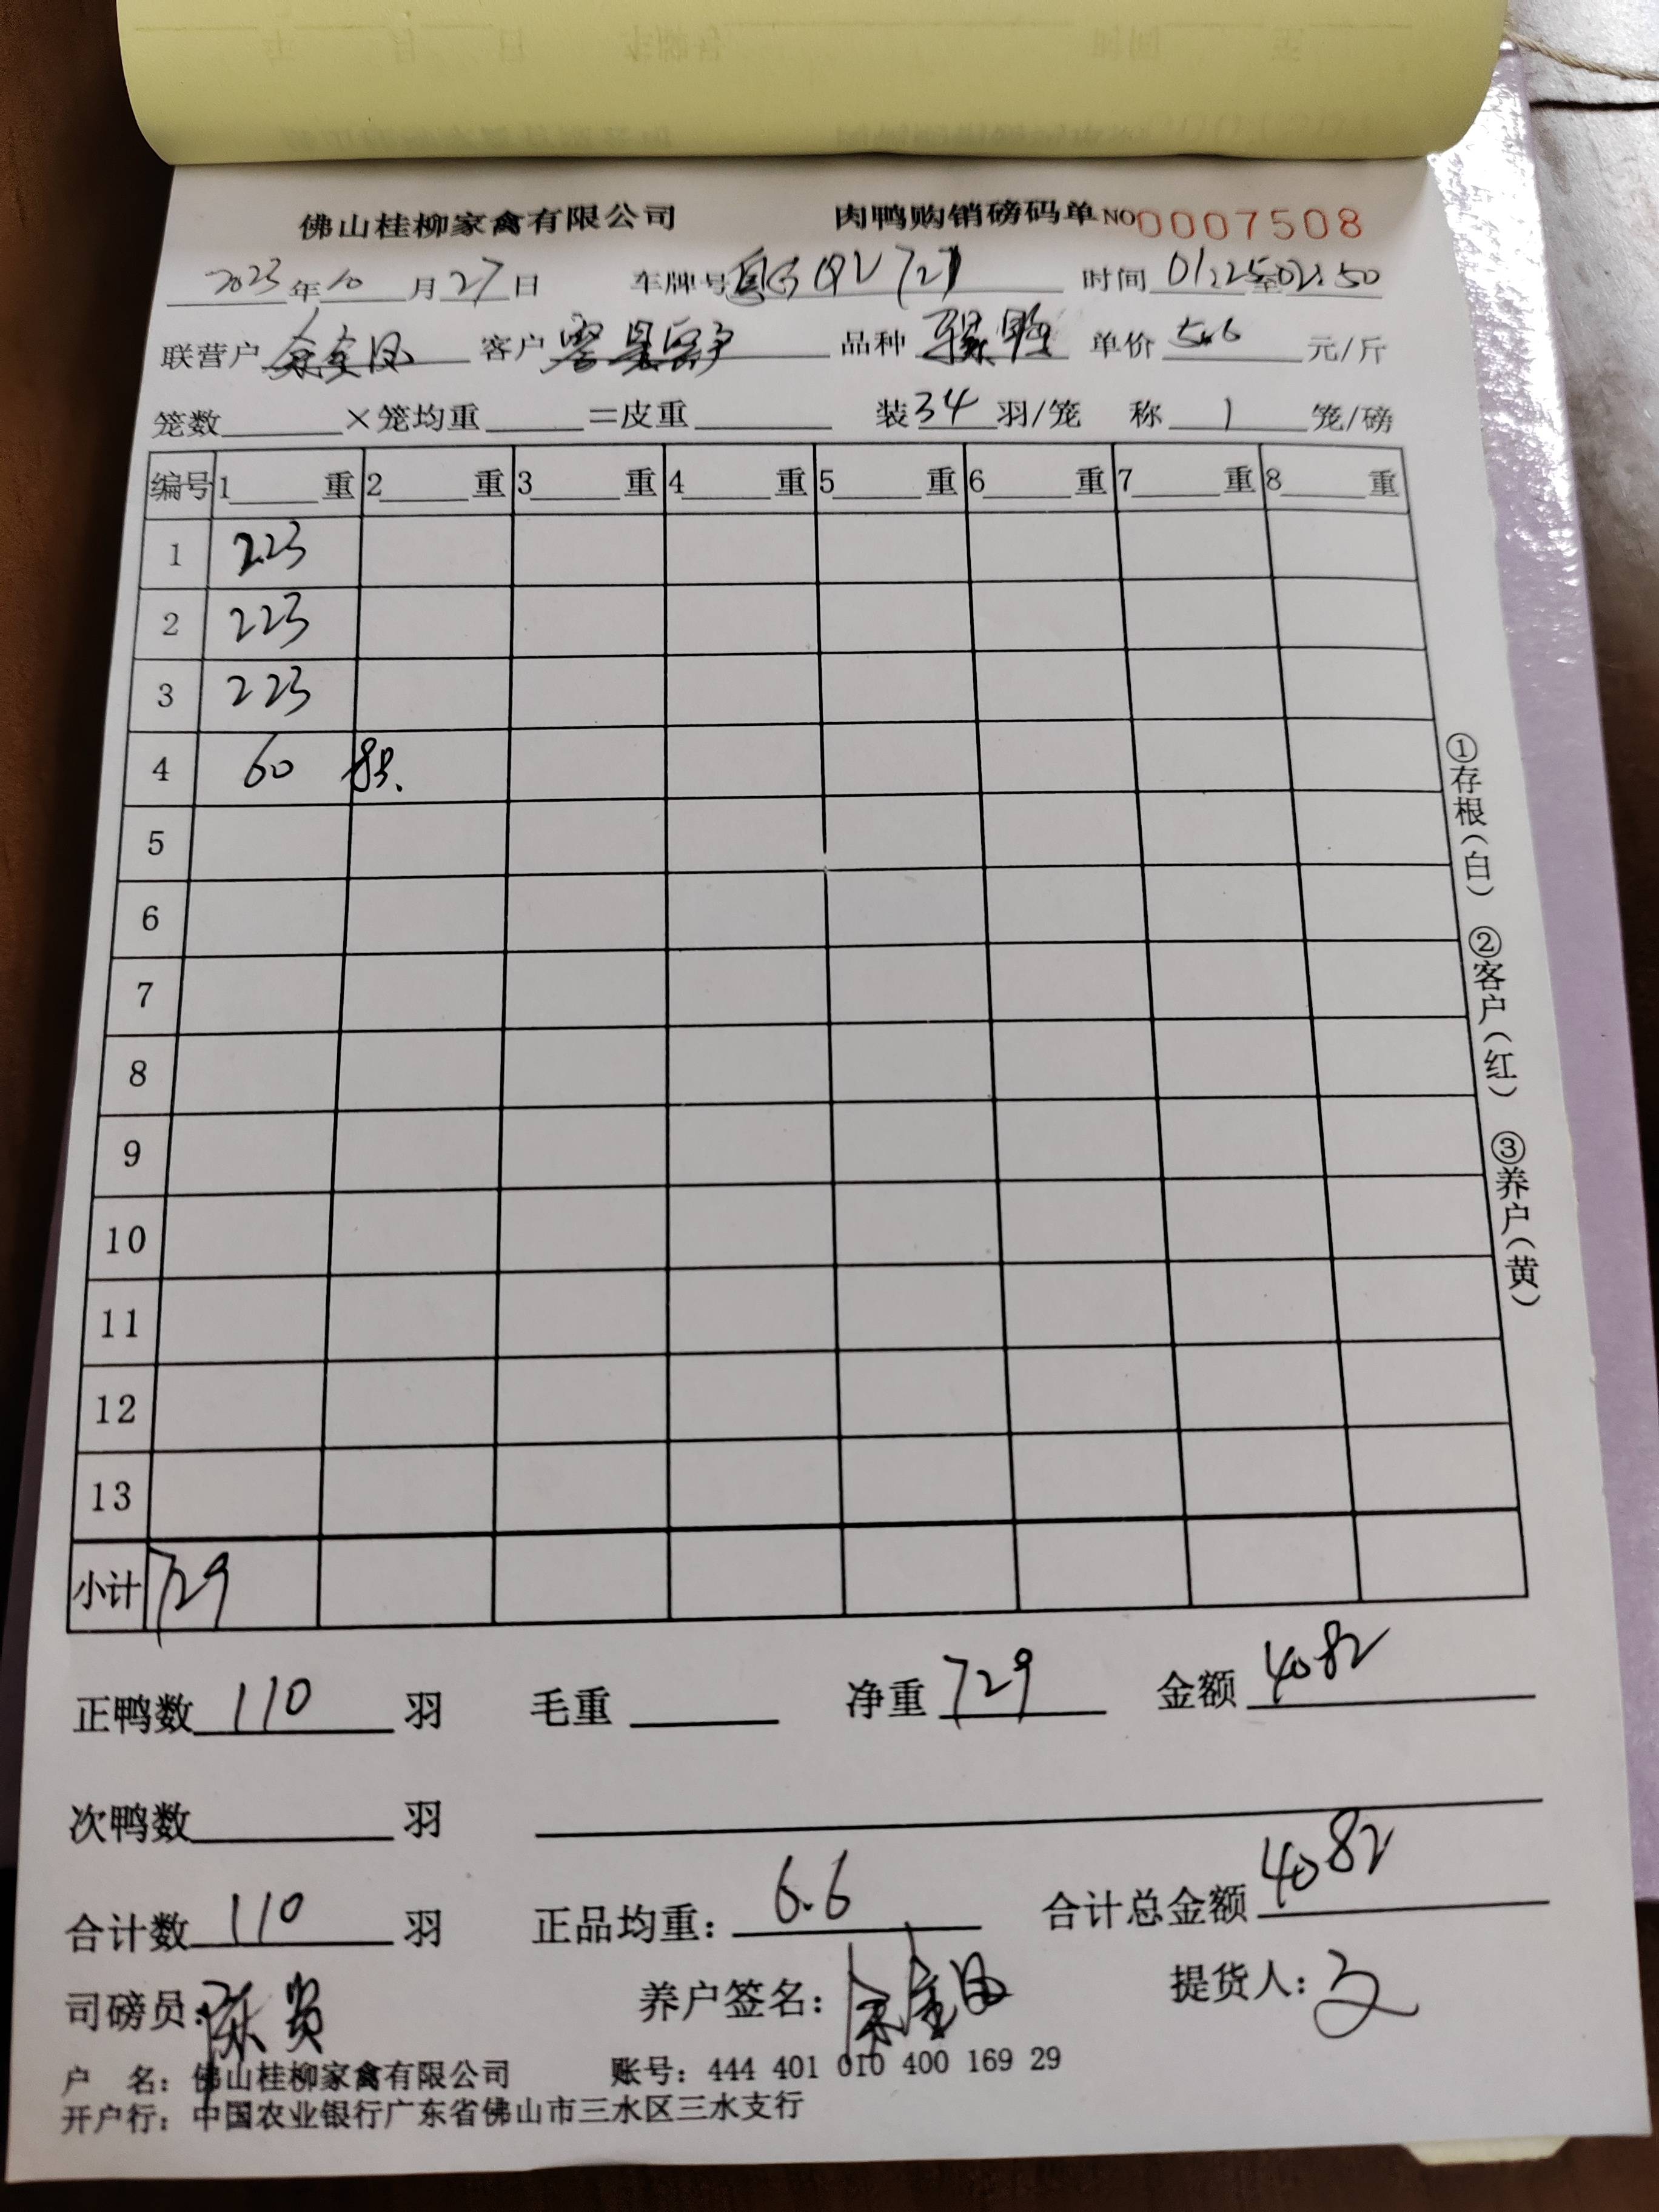 佛山桂柳家禽有限公司 肉鸭购销磅码单 NO 0007508
2023年10月27日 车牌号 时间 01:25至02:50
联营户 客户 品种 单价 5.6 元/斤
笼数 ×笼均重 =皮重 装 34 羽/笼 称 1 笼/磅
编号 1 重 2 重 3 重 4 重 5 重 6 重 7 重 8 重
1 223
2 223
3 223
4 60
5
6
7
8
9
10
11
12
13
小计 729
正鸭数 110 羽 毛重 净重 729 金额 4082
次鸭数 羽
合计数 110 羽 正品均重: 6.6 合计总金额 4082
司磅员: 养户签名: 提货人: 文
户 名: 佛山桂柳家禽有限公司 账号: 444 401 010 400 169 29
开户行: 中国农业银行广东省佛山市三水区三水支行
①存根(白) ②客户(红) ③养户(黄)